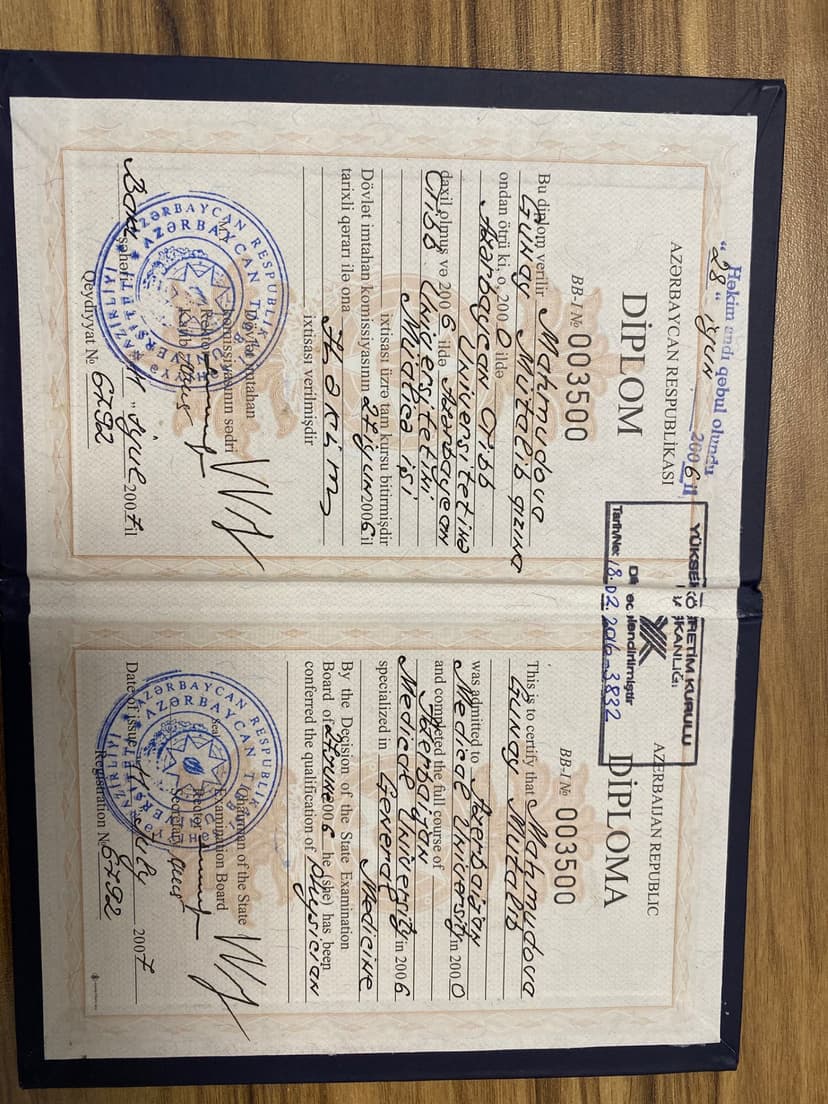 Həkim andı qəbul olundu
"28" iyun 2006 il
AZƏRBAYCAN RESPUBLİKASI
DİPLOM
BB-I № 003500
Bu diplom verilir Mahmudova
Günay Mütəlib qızına
ondan ötrü ki, o, 2000 ildə
Azərbaycan Tibb
Universitetinə
daxil olmuş və 2006 ildə Azərbaycan
Tibb Universitetini
Müalicə işi
ixtisası üzrə tam kursu bitirmişdir
Dövlət imtahan komissiyasının 27 iyun 2006 il
tarixli qərarı ilə ona
Həkim
ixtisası verilmişdir
Dövlət imtahan
komissiyasının sədri
Rektor
Katib
AZƏRBAYCAN RESPUBLİKA
AZƏRBAYCAN T
UNİVERSİTETİ
NAZİRLİYİ
Bakı şəhəri iyul 2007 il
Qeydiyyat № 6792
YÜKSEKÖĞRETİM KURULU
BAŞKANLIĞI
Tarih/No: 18.02.2016-3832
AZERBAIJAN REPUBLIC
DİPLOMA
BB-I № 003500
This is to certify that Mahmudova
Gunay Mutalib
was admitted to Azerbaijan
Medical University in 2000
and completed the full course of
Azerbaijan
Medical University in 2006
specialized in General
Medicine
By the Decision of the State Examination
Board of 27 June 2006 he (she) has been
conferred the qualification of physician
Chairman of the State
Examination Board
Rector
Secretary
Seal
AZƏRBAYCAN RESPUBLİKA
AZƏRBAYCAN T
Date of issue July 2007
Registration № 6792